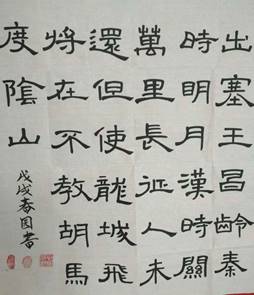 出塞王昌齡秦
時明月漢時關
萬里長征人未
還但使龍城飛
將在不教胡馬
度陰山
戊戌春書